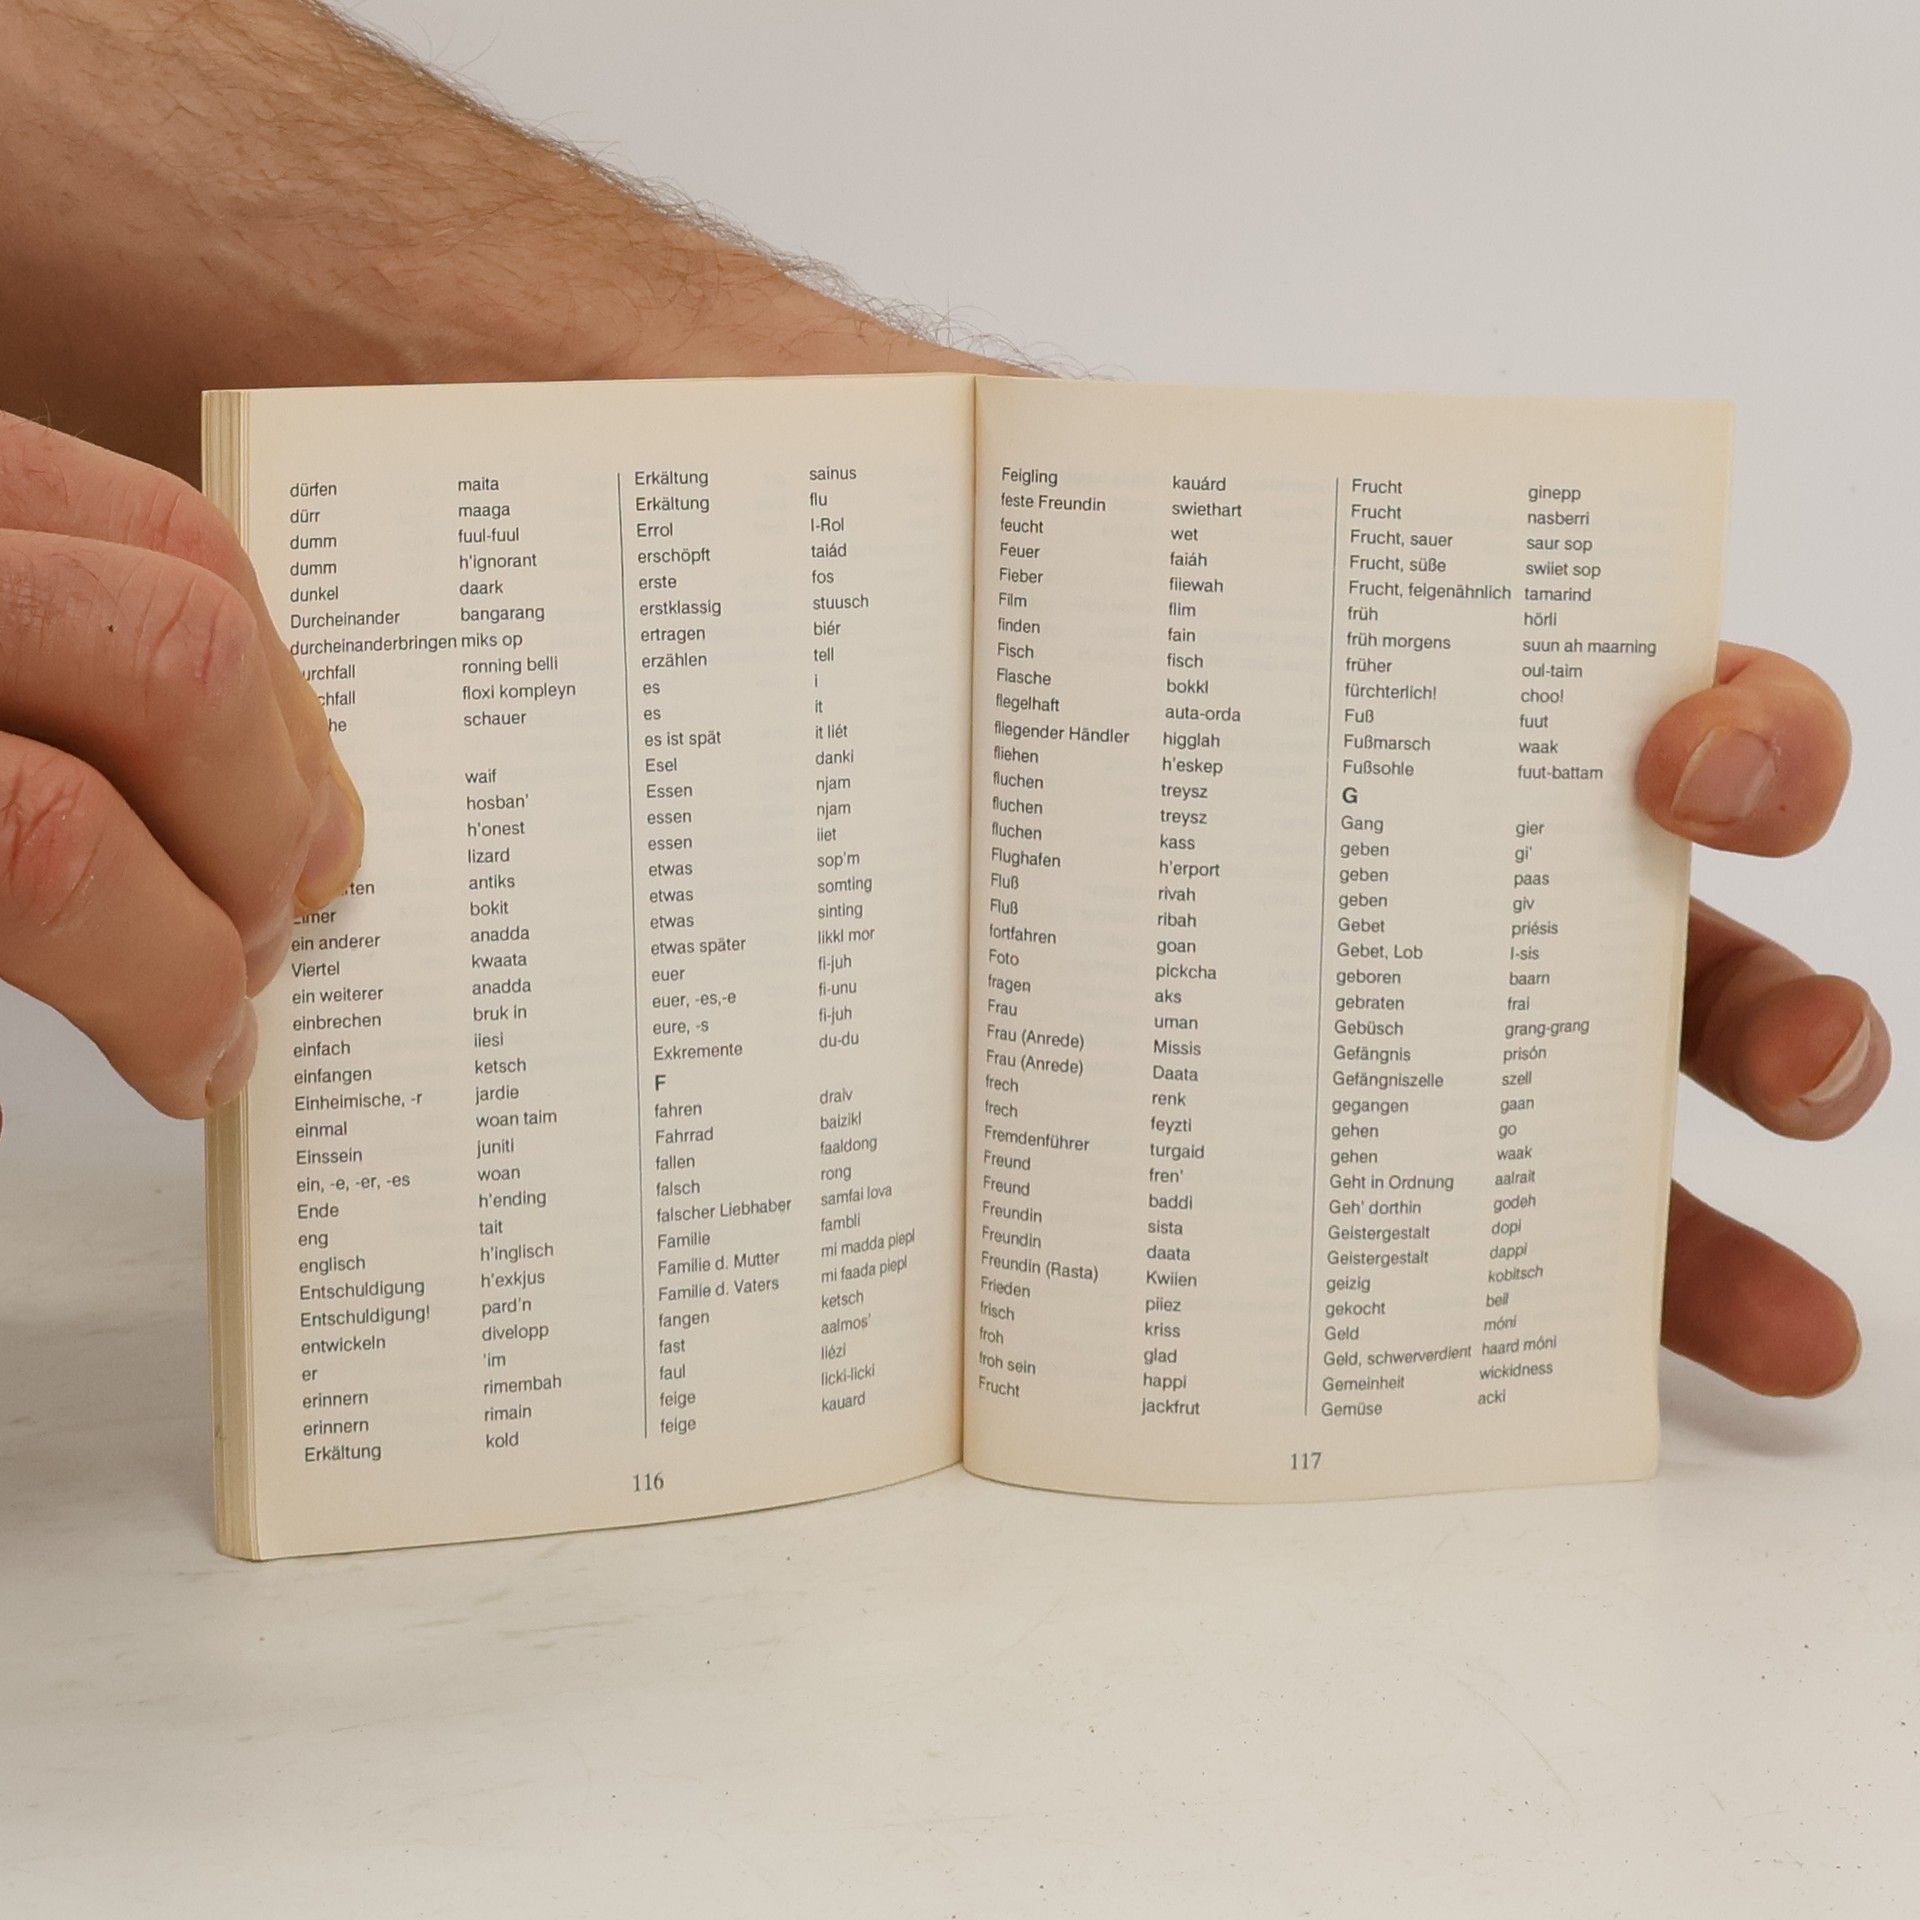 dürfen maita
dürr maaga
dumm fuul-fuul
dumm h'ignorant
dunkel daark
Durcheinander bangarang
durcheinanderbringen miks op
urchfall ronning belli
chfall floxi kompleyn
he schauer
waif
hosban'
h'onest
lizard
ten antiks
Eimer bokit
ein anderer anadda
Viertel kwaata
ein weiterer anadda
einbrechen bruk in
einfach iiesi
einfangen ketsch
Einheimische, -r jardie
einmal woan taim
Einssein juniti
ein, -e, -er, -es woan
Ende h'ending
eng tait
englisch h'inglisch
Entschuldigung h'exkjus
Entschuldigung! pard'n
entwickeln divelopp
er 'im
erinnern rimembah
erinnern rimain
Erkältung kold
Erkältung sainus
Erkältung flu
Errol I-Rol
erschöpft taiád
erste fos
erstklassig stuusch
ertragen biér
erzählen tell
es i
es it
es ist spät it liét
Esel danki
Essen njam
essen njam
essen iiet
etwas sop'm
etwas somting
etwas sinting
etwas später likkl mor
euer fi-juh
euer, -es,-e fi-unu
eure, -s fi-juh
Exkremente du-du
F
fahren draiv
Fahrrad baizikl
fallen faaldong
falsch rong
falscher Liebhaber samfai lova
Familie fambli
Familie d. Mutter mi madda piepl
Familie d. Vaters mi faada piepl
fangen ketsch
fast aalmos'
faul liézi
feige licki-licki
feige kauard
116
Feigling kauárd
feste Freundin swiethart
feucht wet
Feuer faiáh
Fieber fiiewah
Film flim
finden fain
Fisch fisch
Flasche bokkl
flegelhaft auta-orda
fliegender Händler higglah
fliehen h'eskep
fluchen treysz
fluchen treysz
fluchen kass
Flughafen h'erport
Fluß rivah
Fluß ribah
fortfahren goan
Foto pickcha
fragen aks
Frau uman
Frau (Anrede) Missis
Frau (Anrede) Daata
frech renk
frech feyzti
Fremdenführer turgaid
Freund fren'
Freund baddi
Freundin sista
Freundin daata
Freundin (Rasta) Kwiien
Frieden piiez
frisch kriss
froh glad
froh sein happi
Frucht jackfrut
Frucht ginepp
Frucht nasberri
Frucht, sauer saur sop
Frucht, süße swiiet sop
Frucht, feigenähnlich tamarind
früh hörli
früh morgens suun ah maarning
früher oul-taim
fürchterlich! choo!
Fuß fuut
Fußmarsch waak
Fußsohle fuut-battam
G
Gang gier
geben gi'
geben paas
geben giv
Gebet priésis
Gebet, Lob I-sis
geboren baarn
gebraten frai
Gebüsch grang-grang
Gefängnis prisón
Gefängniszelle szell
gegangen gaan
gehen go
gehen waak
Geht in Ordnung aalrait
Geh' dorthin godeh
Geistergestalt dopi
Geistergestalt dappi
geizig kobitsch
gekocht beil
Geld móni
Geld, schwerverdient haard móni
Gemeinheit wickidness
Gemüse acki
117